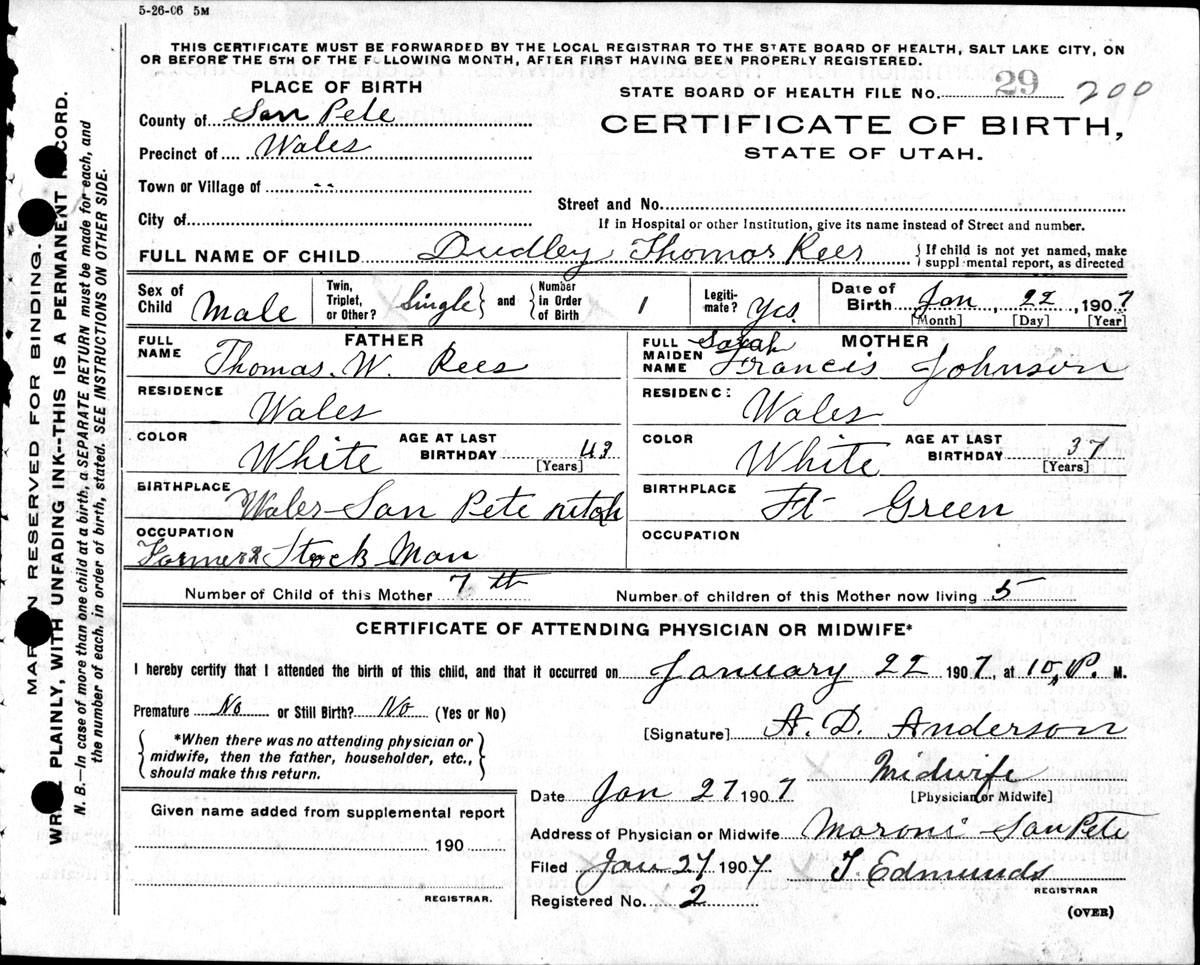 5-26-06 5M
THIS CERTIFICATE MUST BE FORWARDED BY THE LOCAL REGISTRAR TO THE STATE BOARD OF HEALTH, SALT LAKE CITY, ON
OR BEFORE THE 5TH OF THE FOLLOWING MONTH, AFTER FIRST HAVING BEEN PROPERLY REGISTERED.
PLACE OF BIRTH
STATE BOARD OF HEALTH FILE No. 29 200
County of San Pete
CERTIFICATE OF BIRTH,
Precinct of Wales
STATE OF UTAH.
Town or Village of --
Street and No.
City of
If in Hospital or other Institution, give its name instead of Street and number.
FULL NAME OF CHILD Dudley Thomas Rees { If child is not yet named, make
suppl mental report, as directed
Sex of Child Male Twin, Triplet, or Other? Single } and { Number in Order of Birth 1 Legiti-mate? Yes. Date of Birth Jan 22, 1907
[Month] [Day] [Year]
FATHER
FULL NAME Thomas. W. Rees
MOTHER
FULL MAIDEN NAME Sarah Francis Johnson
RESIDENCE Wales
RESIDENC: Wales
COLOR White AGE AT LAST BIRTHDAY 43 [Years]
COLOR White AGE AT LAST BIRTHDAY 37 [Years]
BIRTHPLACE Wales San Pete utah
BIRTHPLACE Ft Green
OCCUPATION Farmer & Stock Man
OCCUPATION
Number of Child of this Mother 7th Number of children of this Mother now living 5
CERTIFICATE OF ATTENDING PHYSICIAN OR MIDWIFE*
I hereby certify that I attended the birth of this child, and that it occurred on January 22 1907, at 10, P. M.
Premature No or Still Birth? No (Yes or No)
[Signature] A. D. Anderson
*When there was no attending physician or
midwife, then the father, householder, etc.,
should make this return.
Midwife
[Physician or Midwife]
Date Jan 27 1907
Given name added from supplemental report
190
REGISTRAR.
Address of Physician or Midwife Moroni San Pete
Filed Jan 27 1907 T. Edmunds
REGISTRAR
Registered No. 2
(OVER)
MAR IN RESERVED FOR BINDING.
WRITE PLAINLY, WITH UNFADING INK--THIS IS A PERMANENT RECORD.
N. B.—In case of more than one child at a birth, a SEPARATE RETURN must be made for each, and
the number of each, in order of birth, stated. SEE INSTRUCTIONS ON OTHER SIDE.